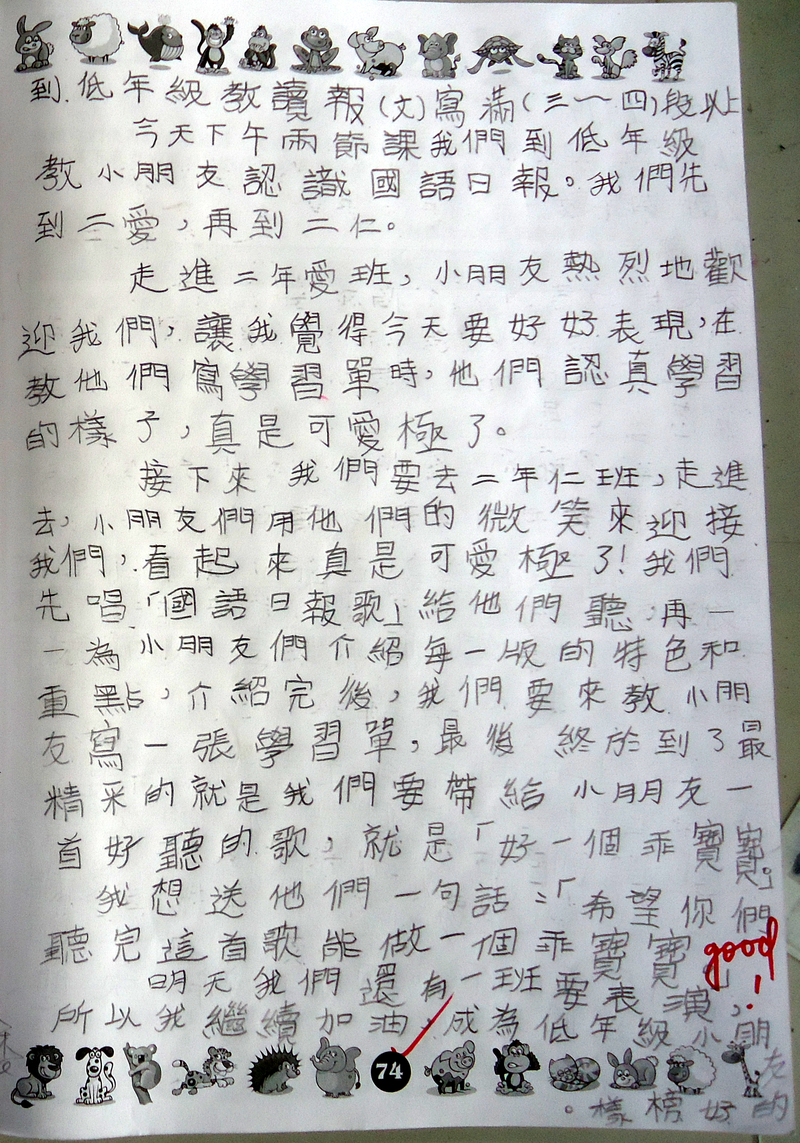 到低年級教讀報(文)寫滿(三~四)段以上
今天下午兩節課我們到低年級
教小朋友認識國語日報。我們先
到二愛，再到二仁。
走進二年愛班，小朋友熱烈地歡
迎我們，讓我覺得今天要好好表現，在
教他們寫學習單時，他們認真學習
的樣子，真是可愛極了。
接下來我們要去二年仁班，走進
去，小朋友們用他們的微笑來迎接
我們，看起來真是可愛極了！我們
先唱「國語日報歌」給他們聽，再一
一為小朋友們介紹每一版的特色和
重點，介紹完後，我們要來教小朋
友寫一張學習單，最後終於到了最
精采的就是我們要帶給小朋友一
首好聽的歌，就是「好一個乖寶寶」。
我想送他們一句話：「希望你們
聽完這首歌能做一個乖寶寶」
good!
明天我們還有一班要表演，
所以我繼續加油，成為低年級小朋
友的
好榜樣。
74